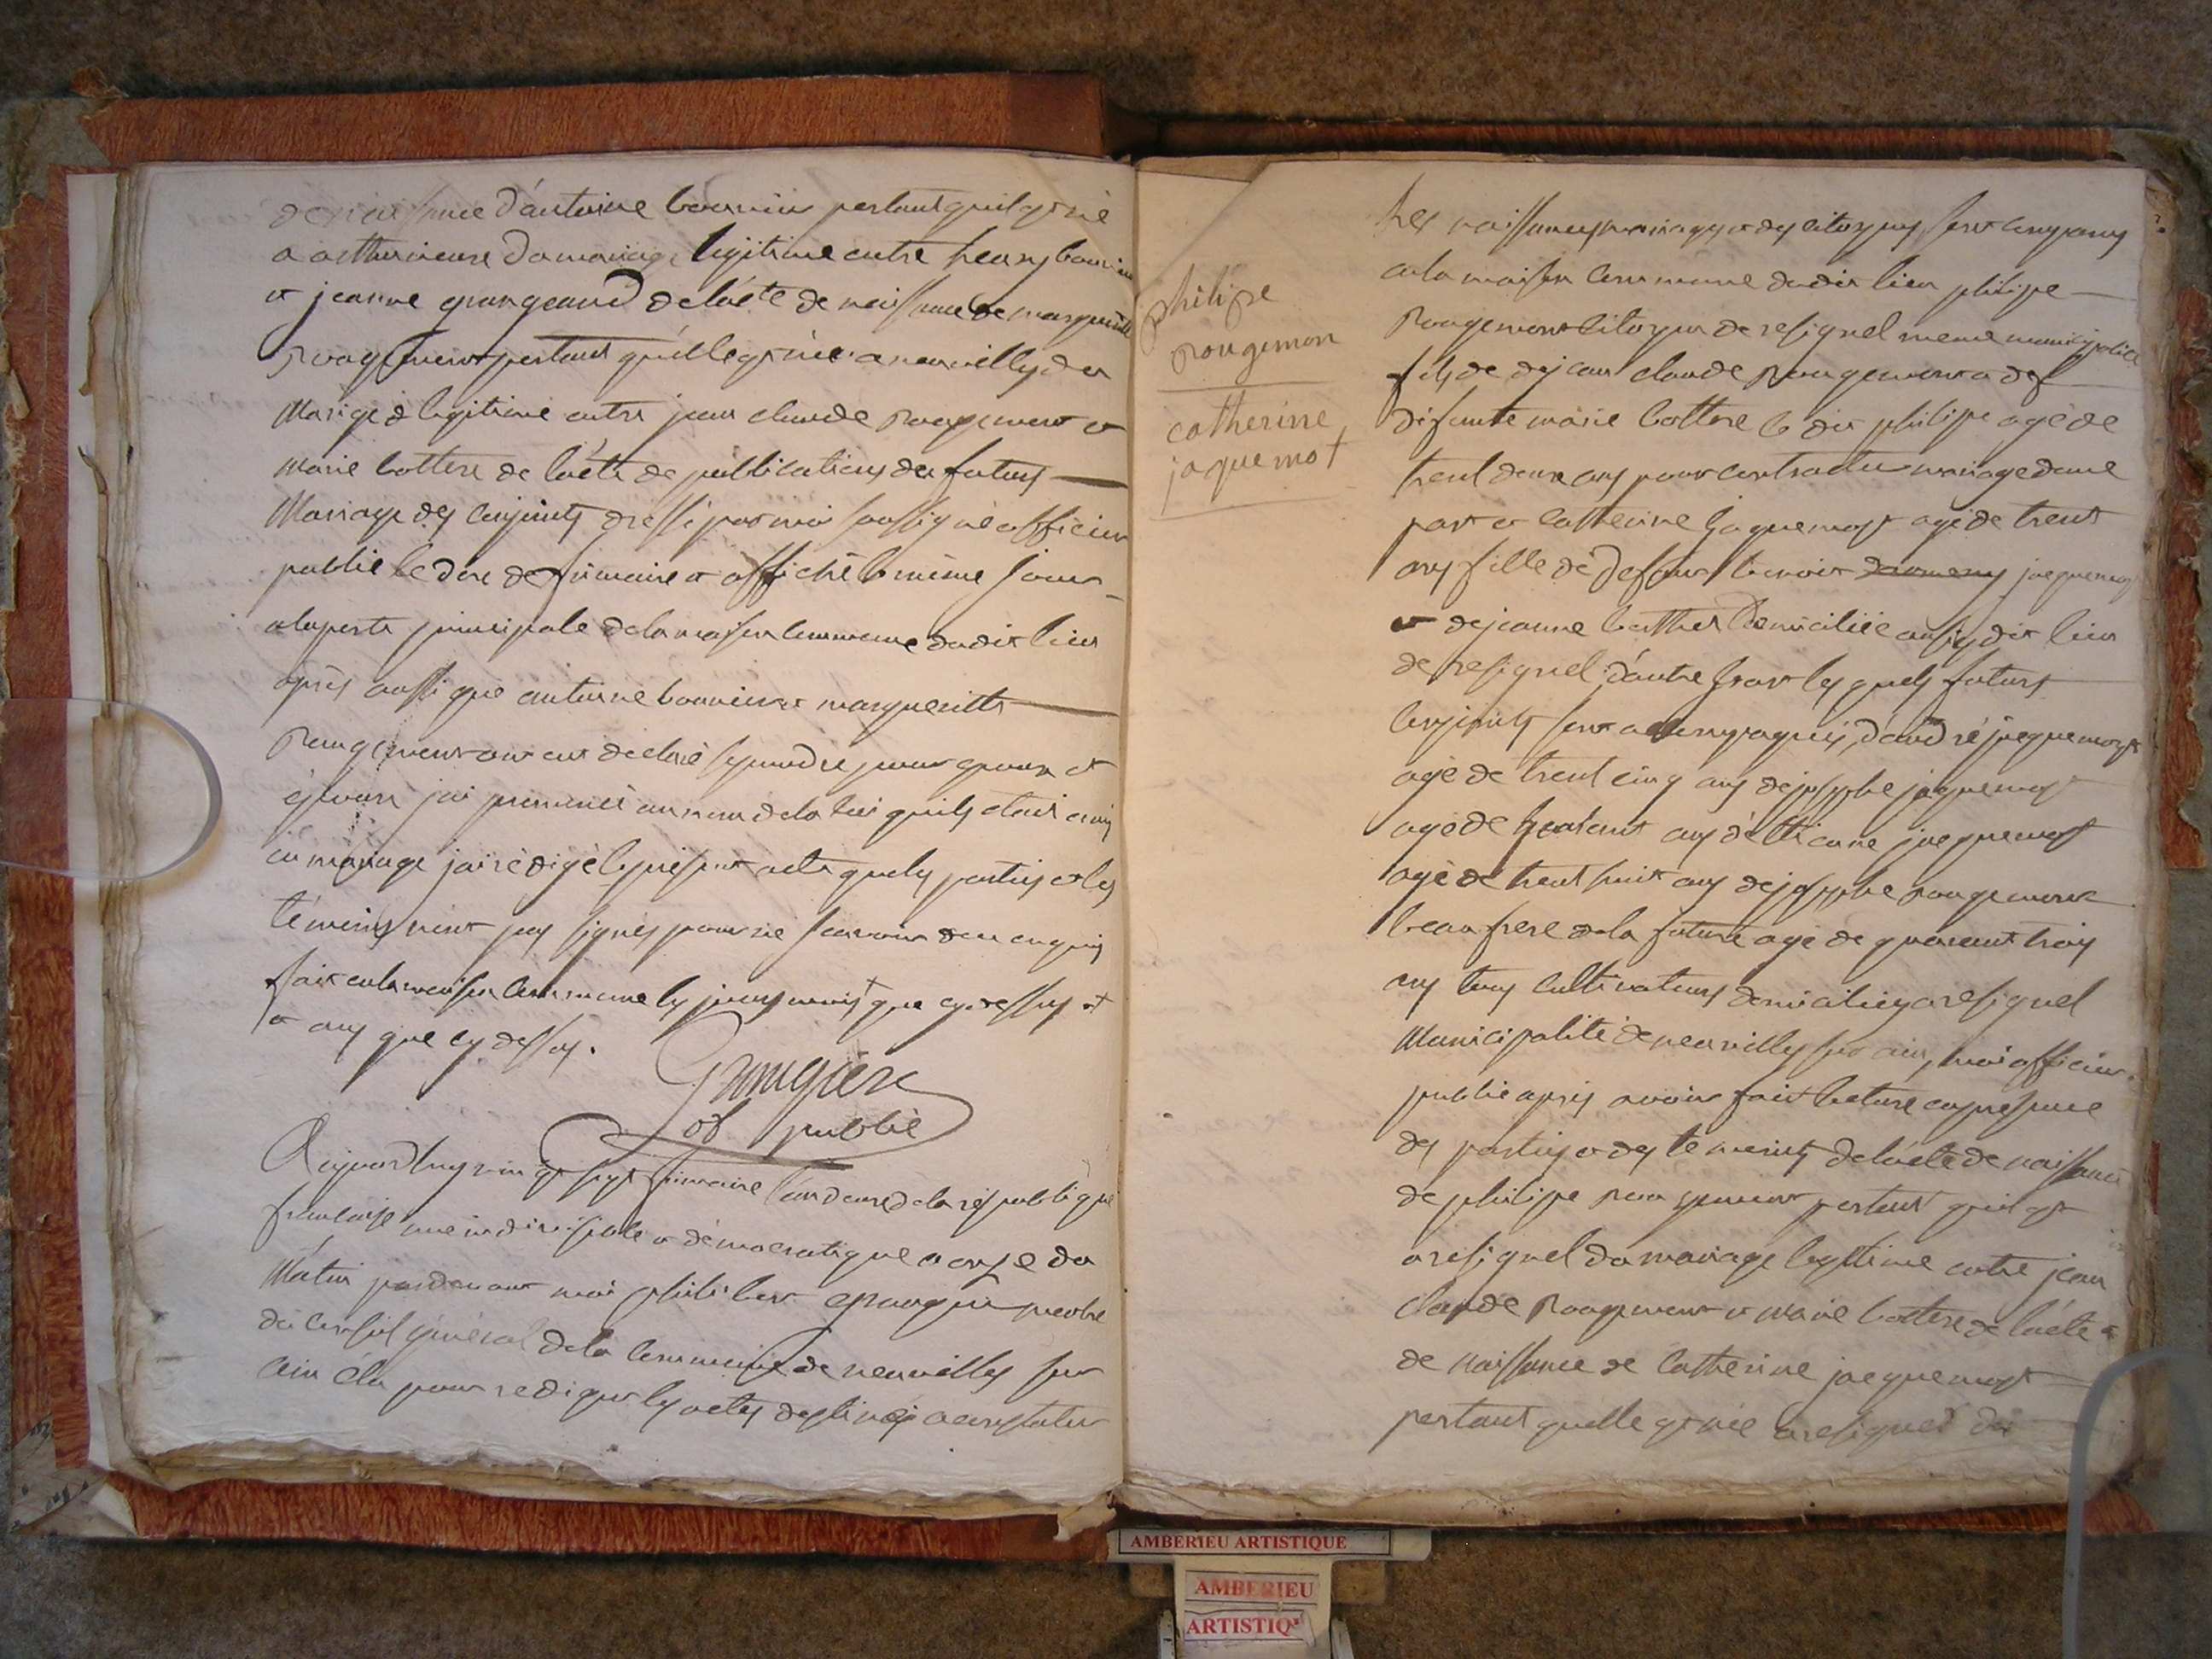 de naissance d'antoine bouvier portant quil est né
a arthenieure du mariage legitime entre henry bouvier
et jeanne grangeand de l'acte de naissance de marguerite
Rougemont portant quelle est née a neuvilly du
Mariage legitime entre jean claude Rougemont et
marie bottere de l'acte de publications des futurs
Mariage des conjoints dressé par moi soussigné officier
public le dixe de frimaire et affiché le même jour
a la porte principale de la maison commune dudit lieu
après aussi que antoine bouvier et marguerite
Rougemont ont eut declaré se prendre pour epoux et
epouse jai prononcé au nom de la loi quils etais unis
en mariage jai rédigé le présent acte que les parties et les
témoins n'ont pas signés pour ne scavoir de ce enquis
fait en la maison commune les jours mois que cy dessus et
et ans que cy dessus.
Grangier
of public
Aujourdhuy vingt sept frimaire l'an deuxe de la république
francaise une indivisible et démocratique a onze du
Matin pardevant moi philibert grangier menbre
du conseil général de la commune de neuvilly sur
ain élu pour rediger les actes destinés a constater
philipe
rougemon
catherine
jaquemot
les naissances mariages et des citoyens sont comparus
en la maison commune dudit lieu philipe
Rougemont citoyen de resignel meme municipalité
fils de de jean claude Rougemont et def
défunte marie bottere le dit philipe agé de
trent deux ans pour contracter mariage dune
part et catherine jaquemost agé de trent
ans fille de defunt benoit jaquemost
et de jeanne berthet domiciliée ausy dit lieu
de resignel d'autre part les quels futurs
conjoints sont accompagnés d'andré jaquemost
agé de trent cinq ans de josephe jaquemost
agé de ans d'etticune jaquemost
agé de trent huit ans de josephe rougemont
beau frere de la future agé de quarent trois
ans tous cultivateurs domiciliés a resignel
Municipalité de neuvilly sur ain, moi officier
public après avoir fait lecture en presence
des parties et des temoins de l'acte de naissance
de philipe rougemont portant quil est
a resignel du mariage legitime entre jean
claude Rougemont et marie bottere de l'acte
de naissance de catherine jaquemost
portant quelle est née a resignel du
AMBERIEU ARTISTIQUE
AMBERIEU
ARTISTIQ